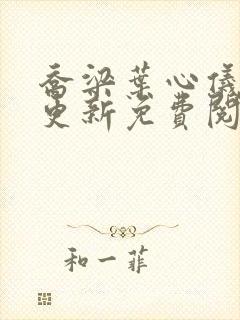 喬梁葉心儀
更新免費閱
和一菲